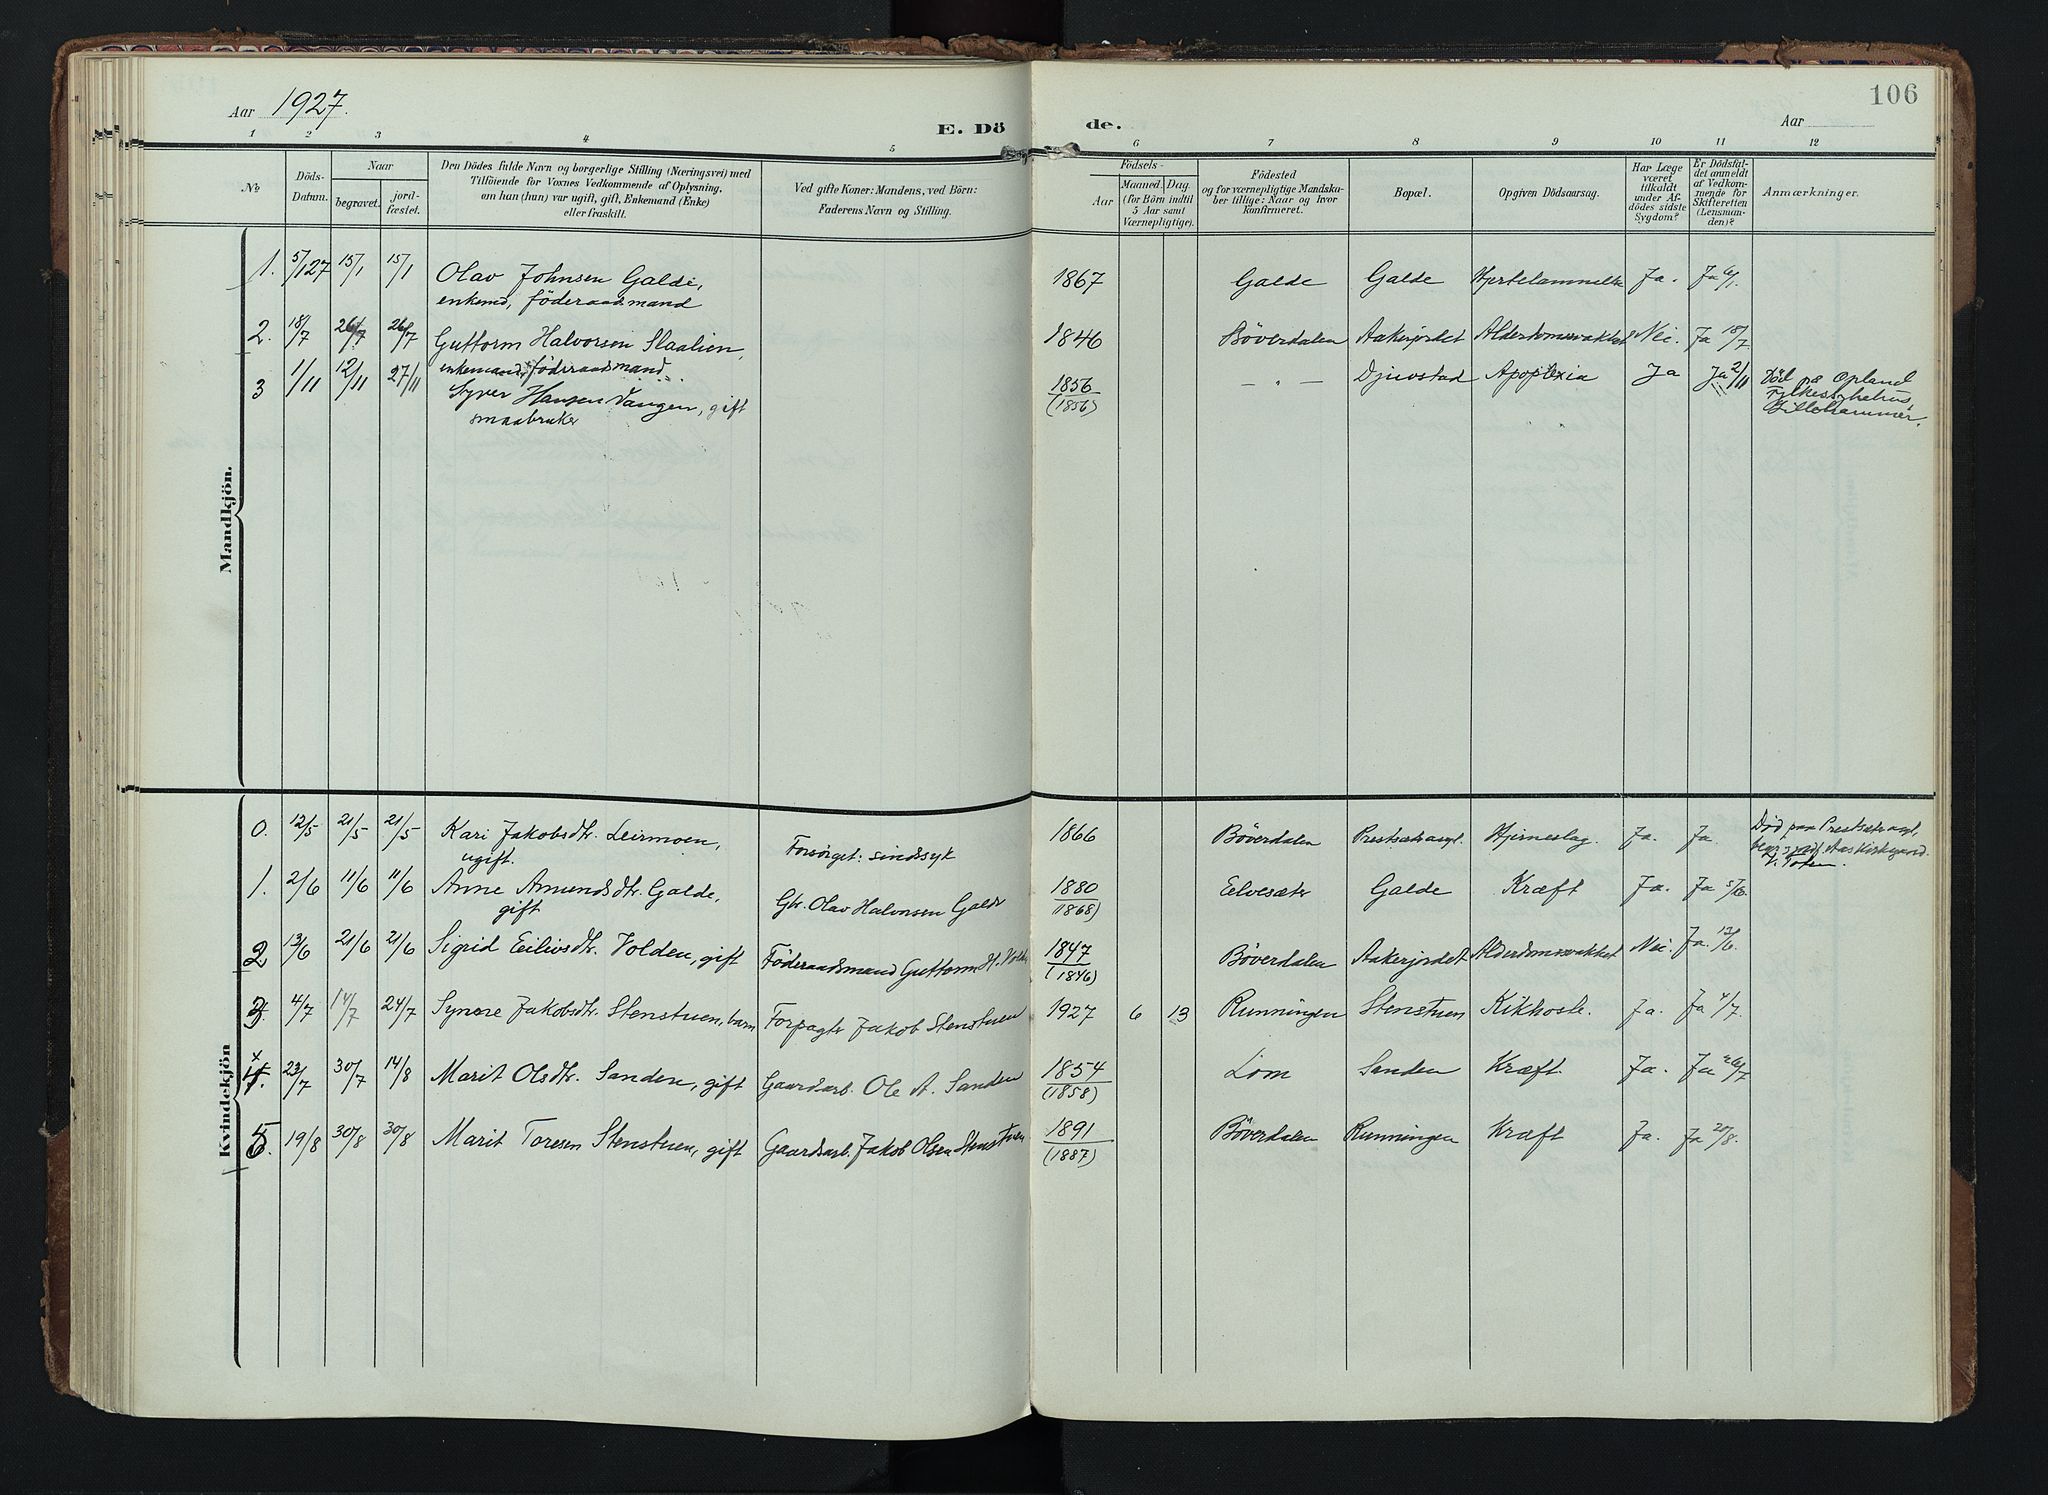 106
Aar 1927.
E. Dö de.
Aar
1 2 3 4 5 6 7 8 9 10 11 12
№
Döds-
Datum.
Naar
begravet.
jord-
fæstet.
Den Dödes fulde Navn og borgerlige Stilling (Næringsvei) med
Tilföiende for Voxnes Vedkommende af Oplysning,
om han (hun) var ugift, gift, Enkemand (Enke)
eller fraskilt.
Ved gifte Koner: Mandens, ved Börn:
Faderens Navn og Stilling.
Födsels-
Aar
Maaned. Dag.
(for Börn indtil
5 Aar samt
Værnepligtige).
Födested
og for værnepligtige Mandska-
ber tillige: Naar og hvor
konfirmeret.
Bopæl.
Opgiven Dödsaarsag.
Har Læge
været
tilkaldt
under Af-
dödes sidste
Sygdom?
Er Dödsfal-
det anmeldt
af Vedkom-
mende for
Skifteretten
(Lensman-
den)?
Anmærkninger.
Mandkjön.
1. 5/1 27 15/1 15/1 Olav Johnsen Galde, 1867 Galde Galde Ja. Ja 6/1.
enkemd, föderaadsmand
2. 18/7 26/7 26/7 Guttorm Halvorsen Slaalien, 1846 Böverdalen Aakerjordet Nei. Ja 18/7
enkemand, föderaadsmand.
3 1/11 12/11 27/11 Syver Hansen Vangen, gift 1856 — " — Djuvstad Apoplexia Ja Ja 2/11 Död på Opland
smaabruker (1856) Fylkessykehus,
Lillehammer.
Kvindekjön
0. 12/5 21/5 21/5 Kari Jakobsdtr. Leirmoen, Forsörget: sindssyk 1866 Böverdalen Prestsæteragl. Hjerneslag Ja. Ja. Död paa Prestsæteragl,
ugift. Aas Kirkegaard
V. Toten.
1. 2/6 11/6 11/6 Anne Amundsdtr. Galde, Gbr. Olav Halvorsen Galde 1880 Eelvesæter Galde Kræft Ja. Ja 5/6.
gift (1868)
2 13/6 21/6 21/6 Sigrid Eilivsdtr. Volden, gift Föderaadsmand Guttorm H. 1847 Böverdalen Aakerjordet Alderdomssvakhet Nei. Ja.
(1846)
3. 4/7 14/7 24/7 Synöve Jakobsdtr. Stenstuen, barn Forpagter Jakob Stenstuen 1927 6 13 Runningen Stenstuen Kikhoste. Ja. Ja 4/7.
4. 23/7 30/7 14/8 Marit Olsdtr. Sanden, gift Gaardarb. Ole A. Sanden 1854 Lom Sanden Kræft. Ja. Ja 26/7
(1858)
5. 19/8 30/8 30/8 Marit Toresen Stenstuen, gift Gaardsarb. Jakob Olsen Stenstuen 1891 Böverdalen Runningen Kræft Ja. Ja 20/8.
(1887)